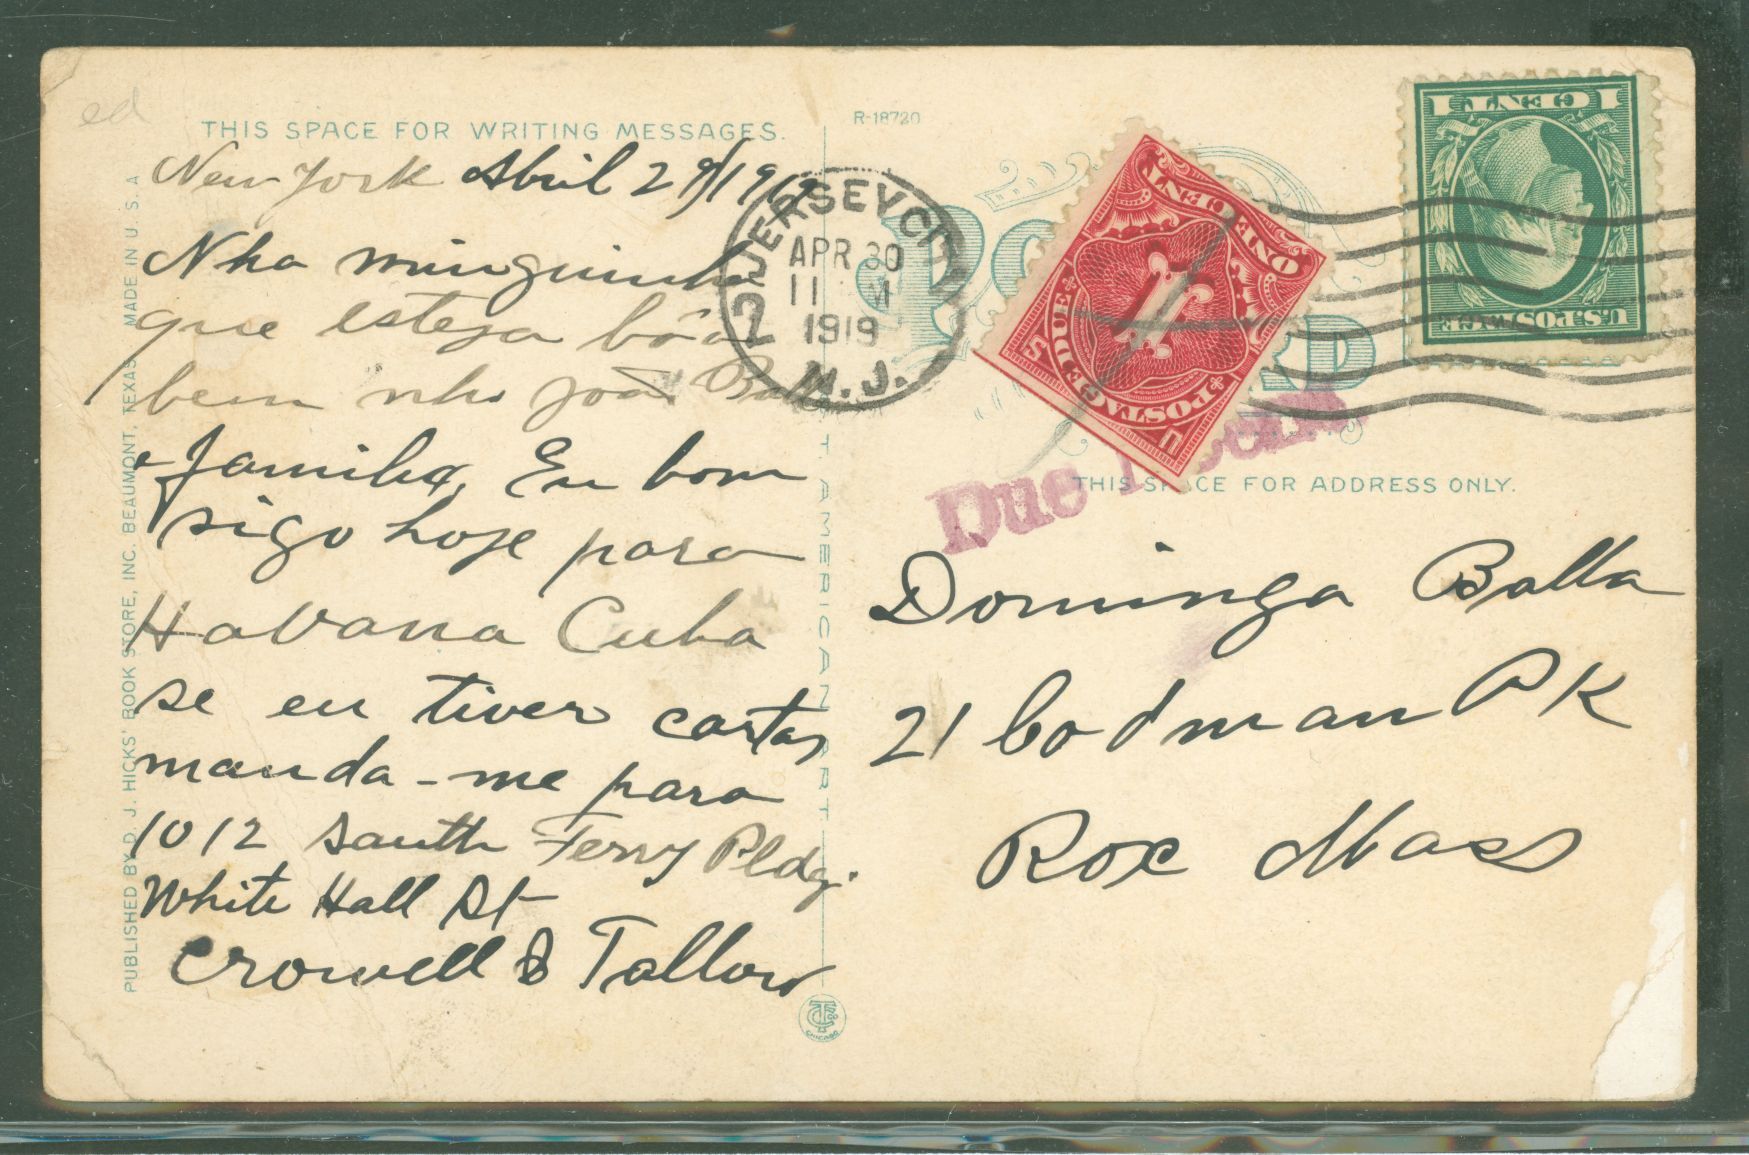 ed
THIS SPACE FOR WRITING MESSAGES.
New York Abril 29/1919
Nha minguinha
que esteja bôa
bem nho joão Balla
e familia, Eu bom
sigo hoje para
Habana Cuba
se eu tiver cartas
manda-me para
1012 South Ferry Bldg.
White Hall St
Crowell & Tallow
PUBLISHED BY D. J. HICKS' BOOK STORE, INC. BEAUMONT, TEXAS. MADE IN U. S. A.
T AMERICAN ART
CHICAGO
R-18720
JERSEY CITY
APR 30
11 M
1919
N.J.
2
ONE CENT
1
U S
POSTAGE DUE
1 CENT 1
U.S. POSTAGE
Due 1 Cent
THIS SPACE FOR ADDRESS ONLY.
Dominga Balla
21 bodman PK
Rox Mass